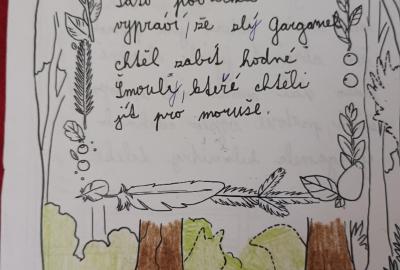 vypráví, že zlý Gargamel
chtěl zabít hodné
Šmouly, kteře chtěli
jít pro moruše.